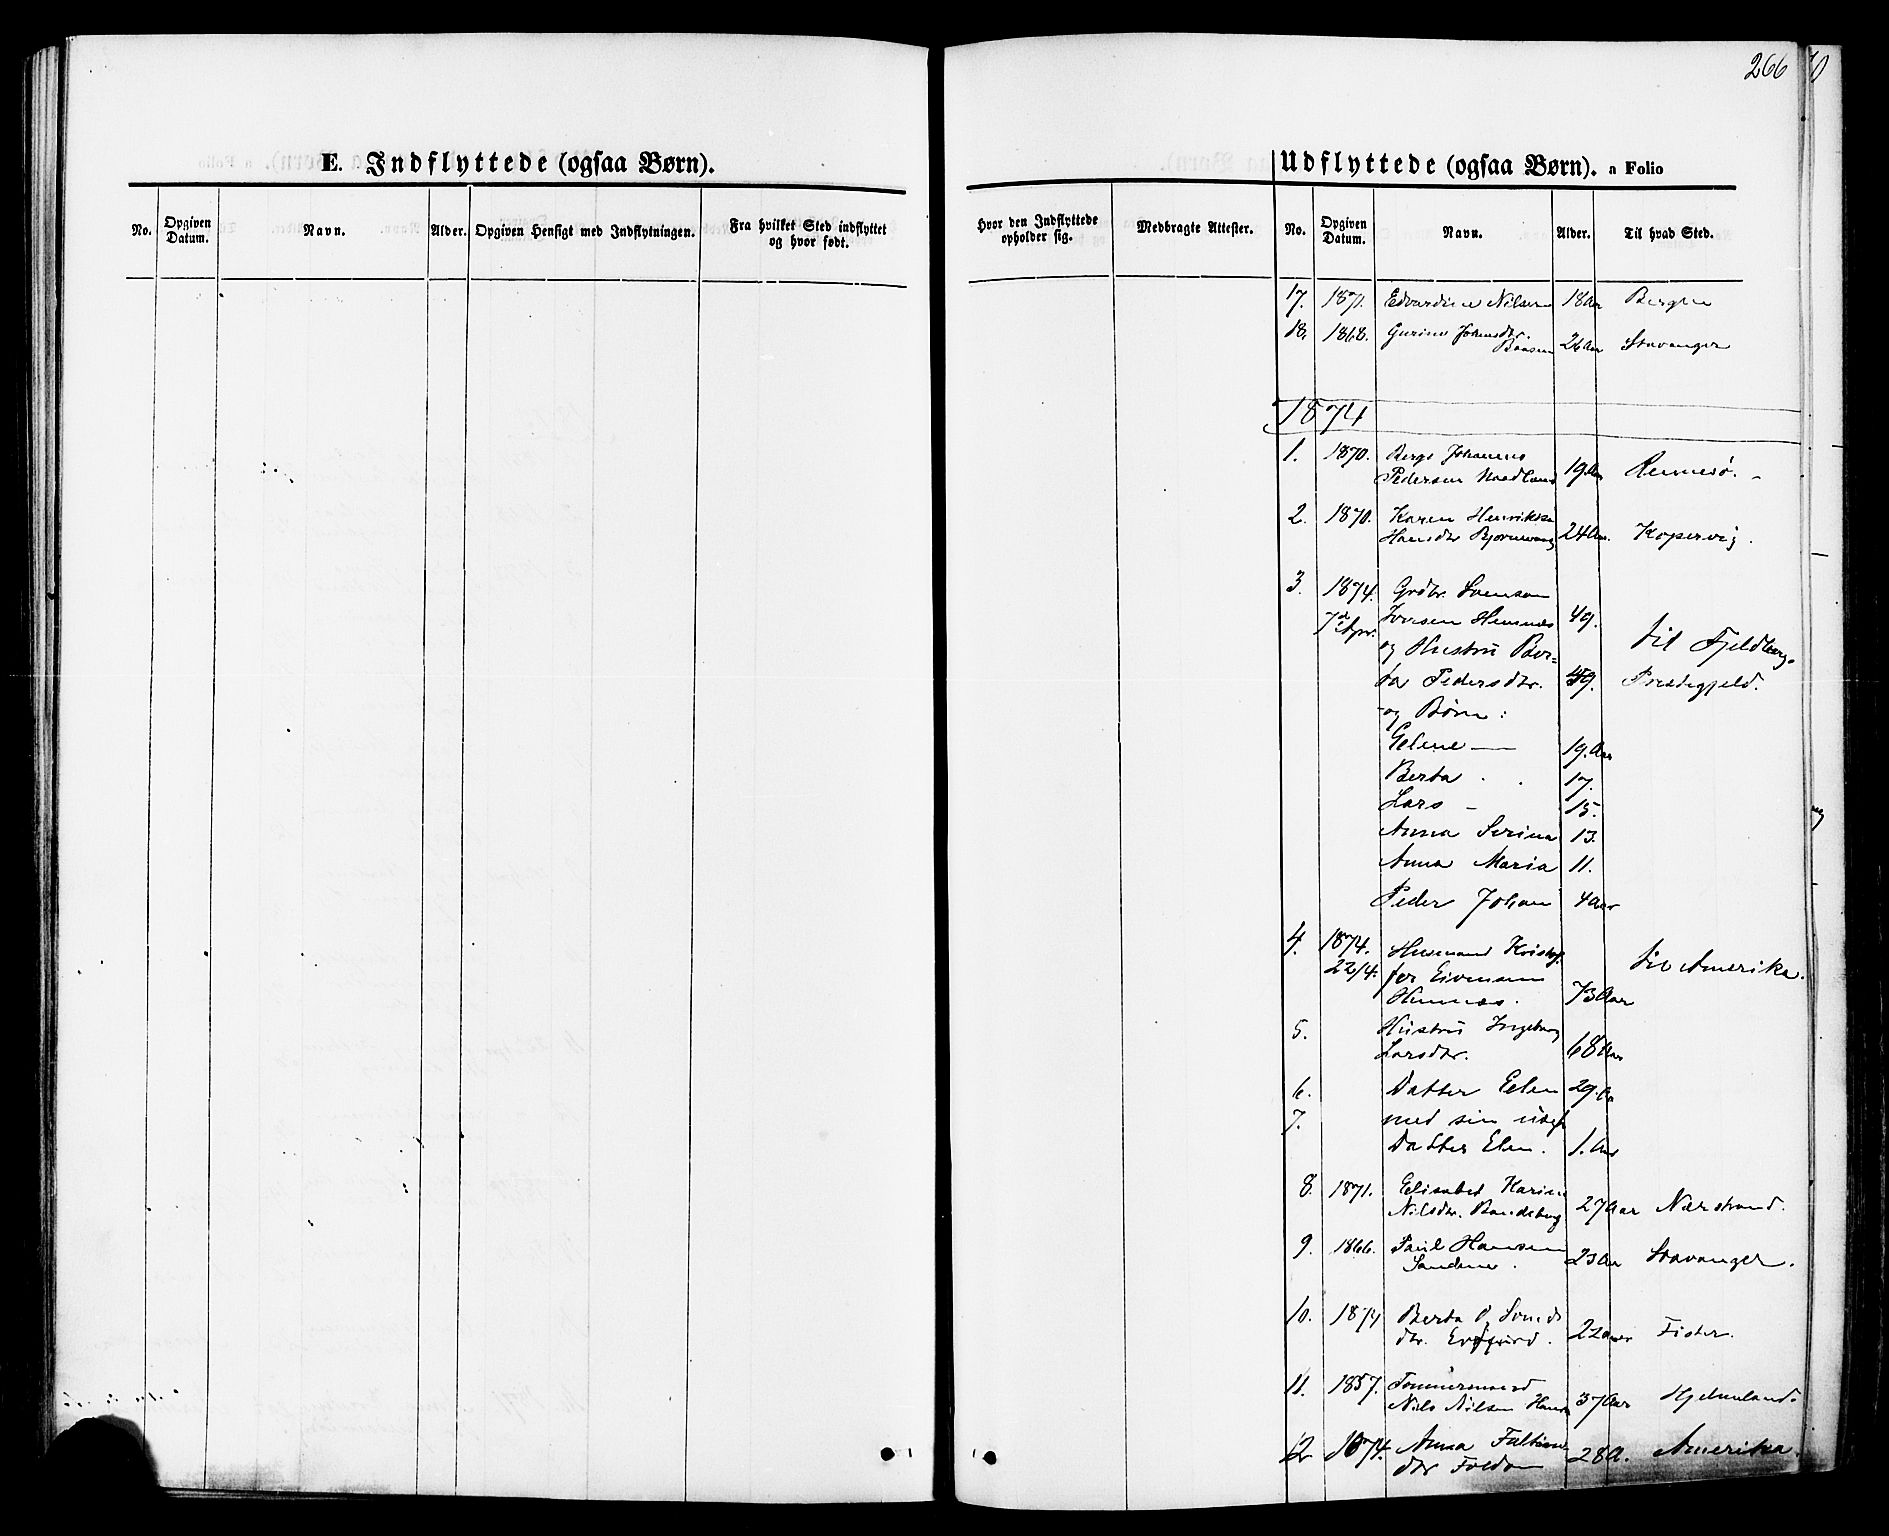 266
E. Indflyttede (ogsaa Børn).
No.
Opgiven Datum.
Navn.
Alder.
Opgiven Hensigt med Indflytningen.
Fra hvilket Sted indflyttet og hvor født.
Hvor den Indflyttede opholder sig.
Medbragte Attester.
Udflyttede (ogsaa Børn). a Folio
No.
Opgiven Datum.
Navn.
Alder.
Til hvad Sted.
17. 1871. Edvardine Nilsen 18 Aar Bergen
18. 1868. Gurine Johnsdtr.
26 Aar Stavanger
1874
1. 1870. Johannes
Pedersen 19 Aar Rennesø.
2. 1870. Karen
Hansdtr 24 Aar. Kopervig.
3. 1874. Grdbr. Svensen
7d Apr. Hennæs 49.
og Hustru Ber= til Fjeldberg
ta Pedersdtr. 49. Prestegjeld.
og Børn:
Eelene — 19. Aar
Berta 17.
Lars 15.
Anna Serina 13.
Anna Maria 11.
Peder Johan 4 Aar
4. 1874. Husmand Kristof=
22/4. fer til Amerika.
Hennæs. 73 Aar
5. Hustru Ingeborg
Larsdtr. 68 Aar
6. Datter Eelen 29. Aar
7. med sin
Datter Elen. 1. Aar
8. 1871. Elisabet Karine
Nilsdtr. 27 Aar Nærstrand.
9. 1866. Paul Hansen
23 Aar Stavanger.
10. 1874 Berta
dtr. 22 Aar Fister.
11. 1857. Tømmermand
Nils Nilsen 37 Aar Hjelmeland.
12 1874. Anna
dtr Foldøen 28 A. Amerika.